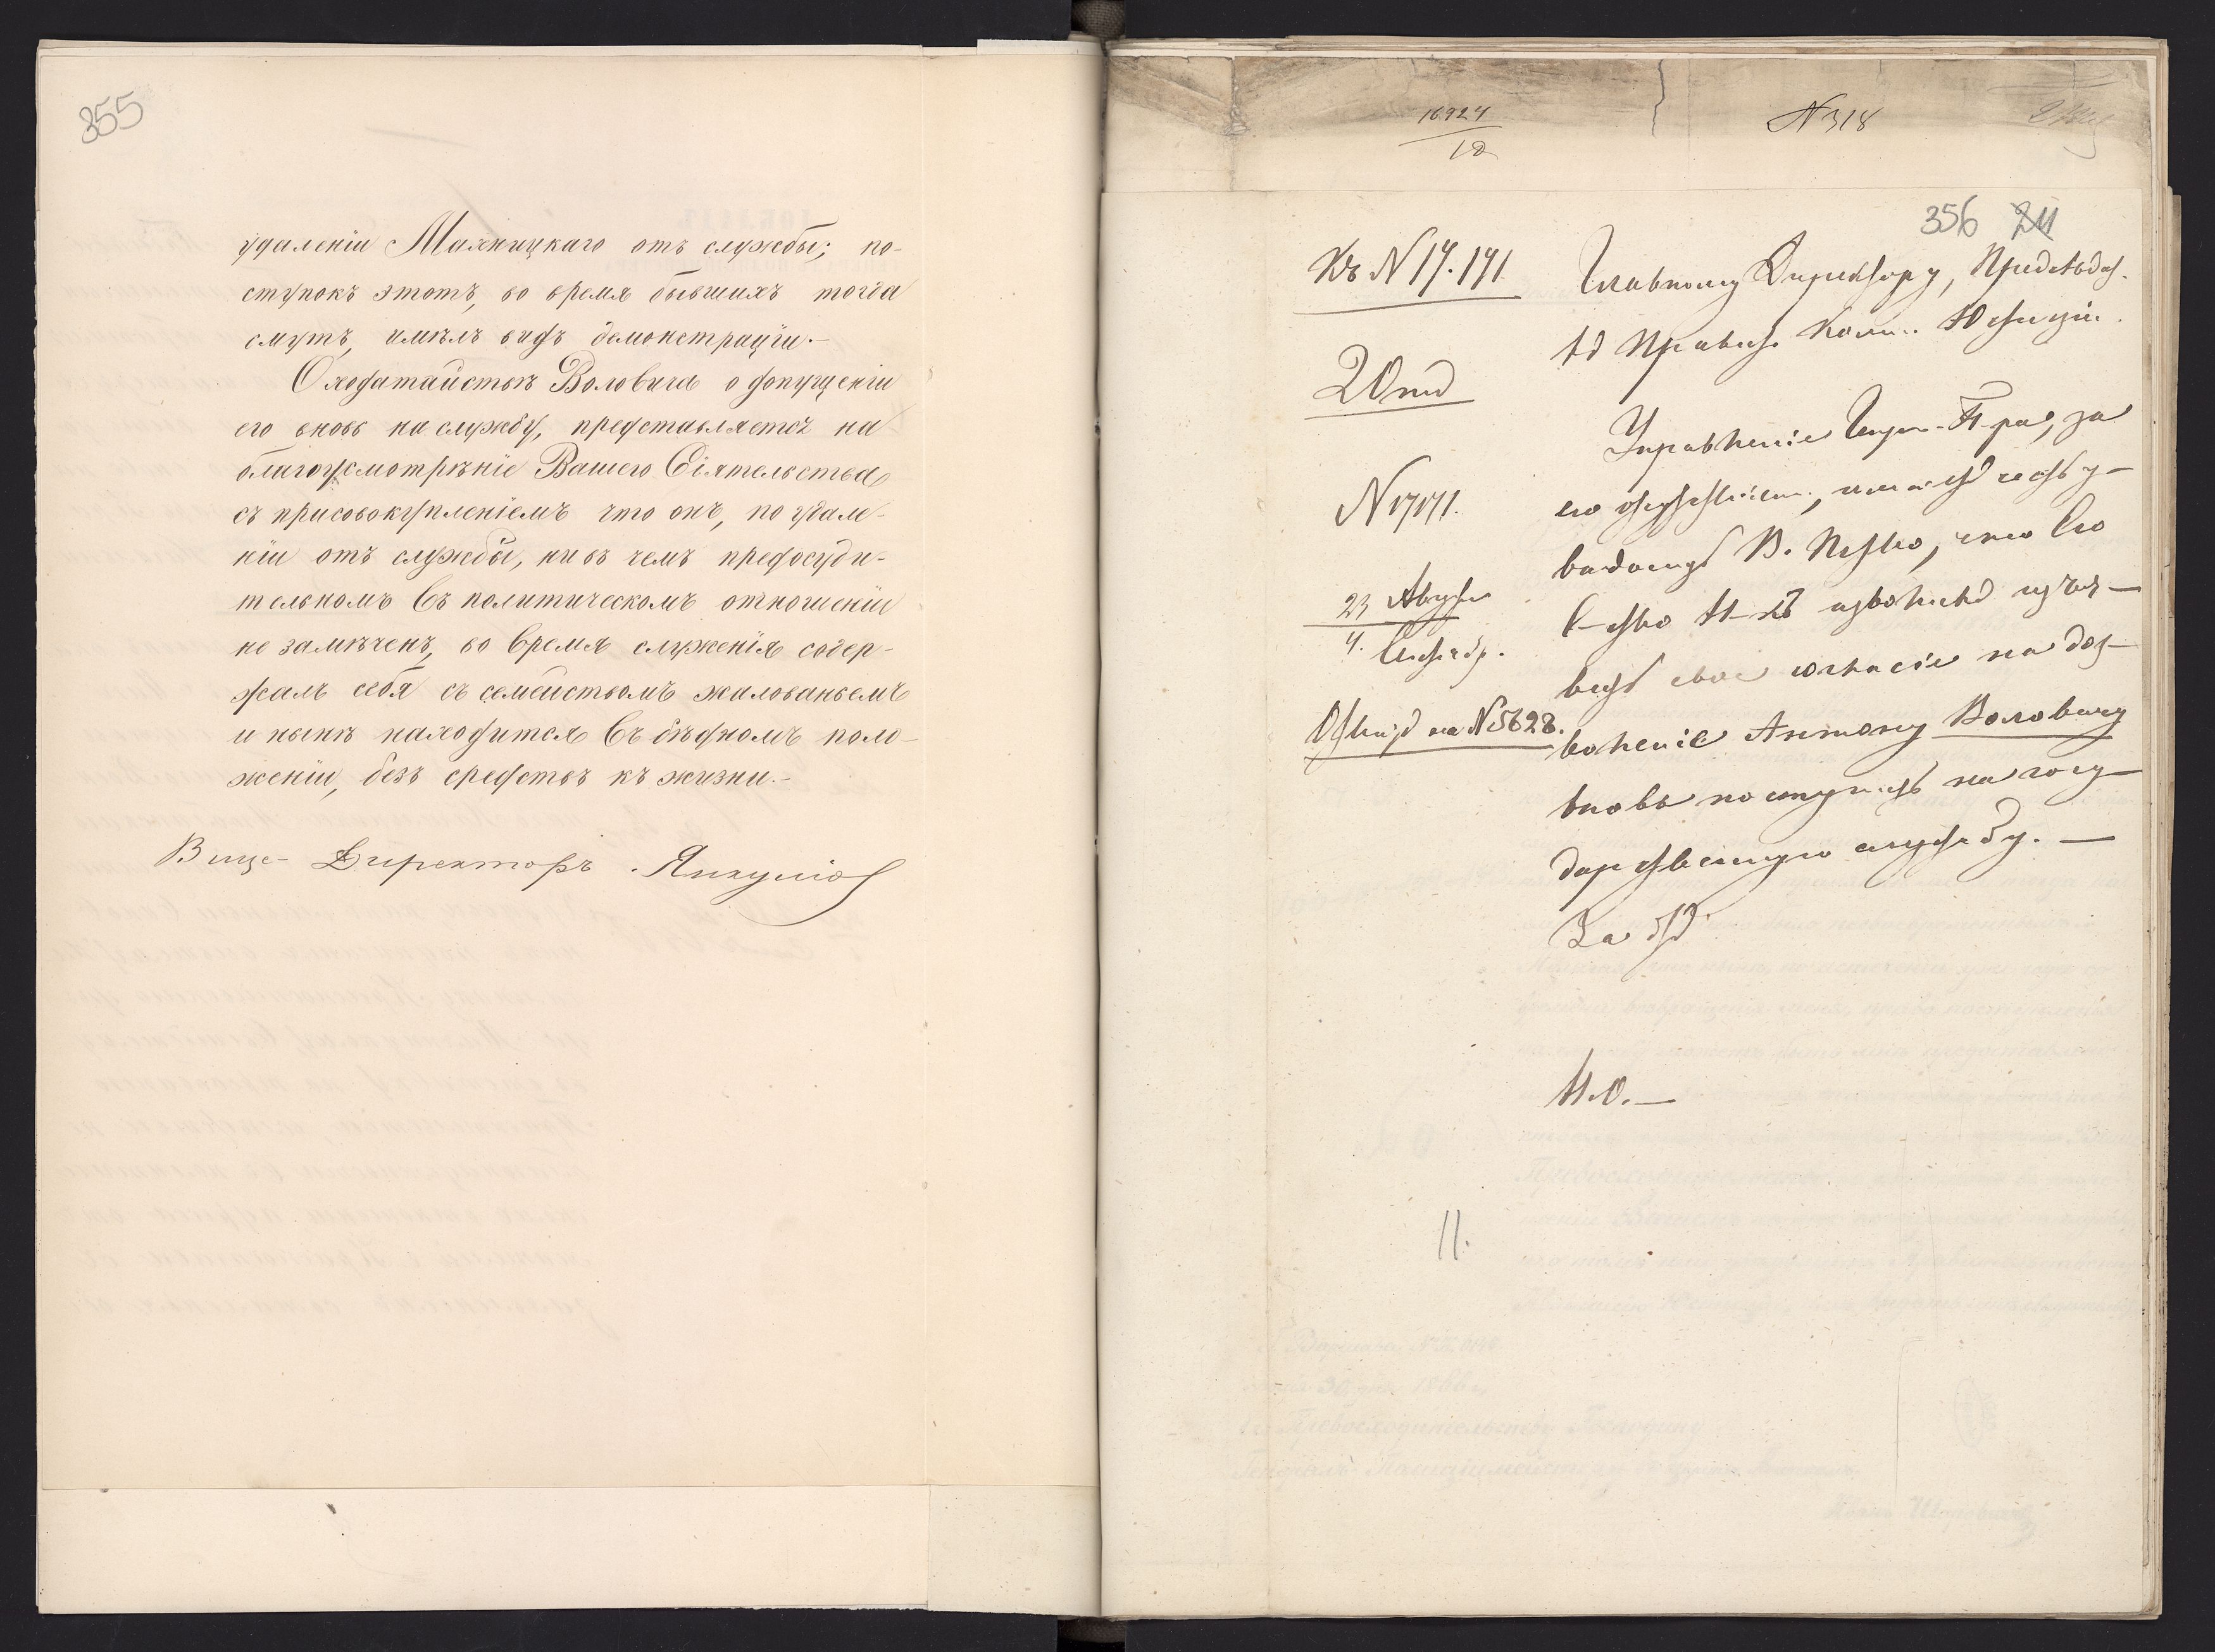 355
удаленіи Маяницкаго отъ службы; по-
ступокъ этотъ, во время бывшихъ тогда
смутъ, имѣлъ видъ демонстраціи.-
О ходатайствѣ Воловича о допущеніи
его вновь на службу, представляется на
благоусмотрѣніе Вашего Сіятельства
съ присовокупленіемъ что онъ, по удале-
ніи отъ службы, ни въ чемъ предосуди-
тельномъ въ политическомъ отношеніи
не замѣченъ, во время служенія содер-
жалъ себя съ семействомъ жалованьемъ
и нынѣ находится въ бѣдномъ поло-
женіи, безъ средствъ къ жизни.-
Вице-Директоръ
16924
N 318
356 211
Къ N 17.171.
Главному Директору, Предсѣдат.
Правит. Ком. Юстиціи.
2 Отд
Управленіе Ген.-П-ра, за
его отсутствіемъ, имѣетъ честь у-
N 17171.
вѣдомить В. Пр-ство, что Его
23 Августа
С-ство Н-къ изволилъ изъя-
4. Сентябр.
вить свое согласіе на доз-
Отвѣтъ на N 5628.
воленіе Антону Воловичу
вновь поступить на госу-
дарственную службу. —
За
Н.О.—
11.